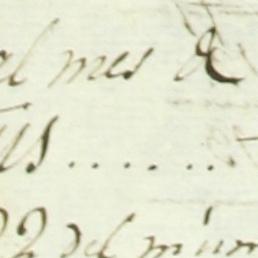 el mes d
us.......
22 del mism